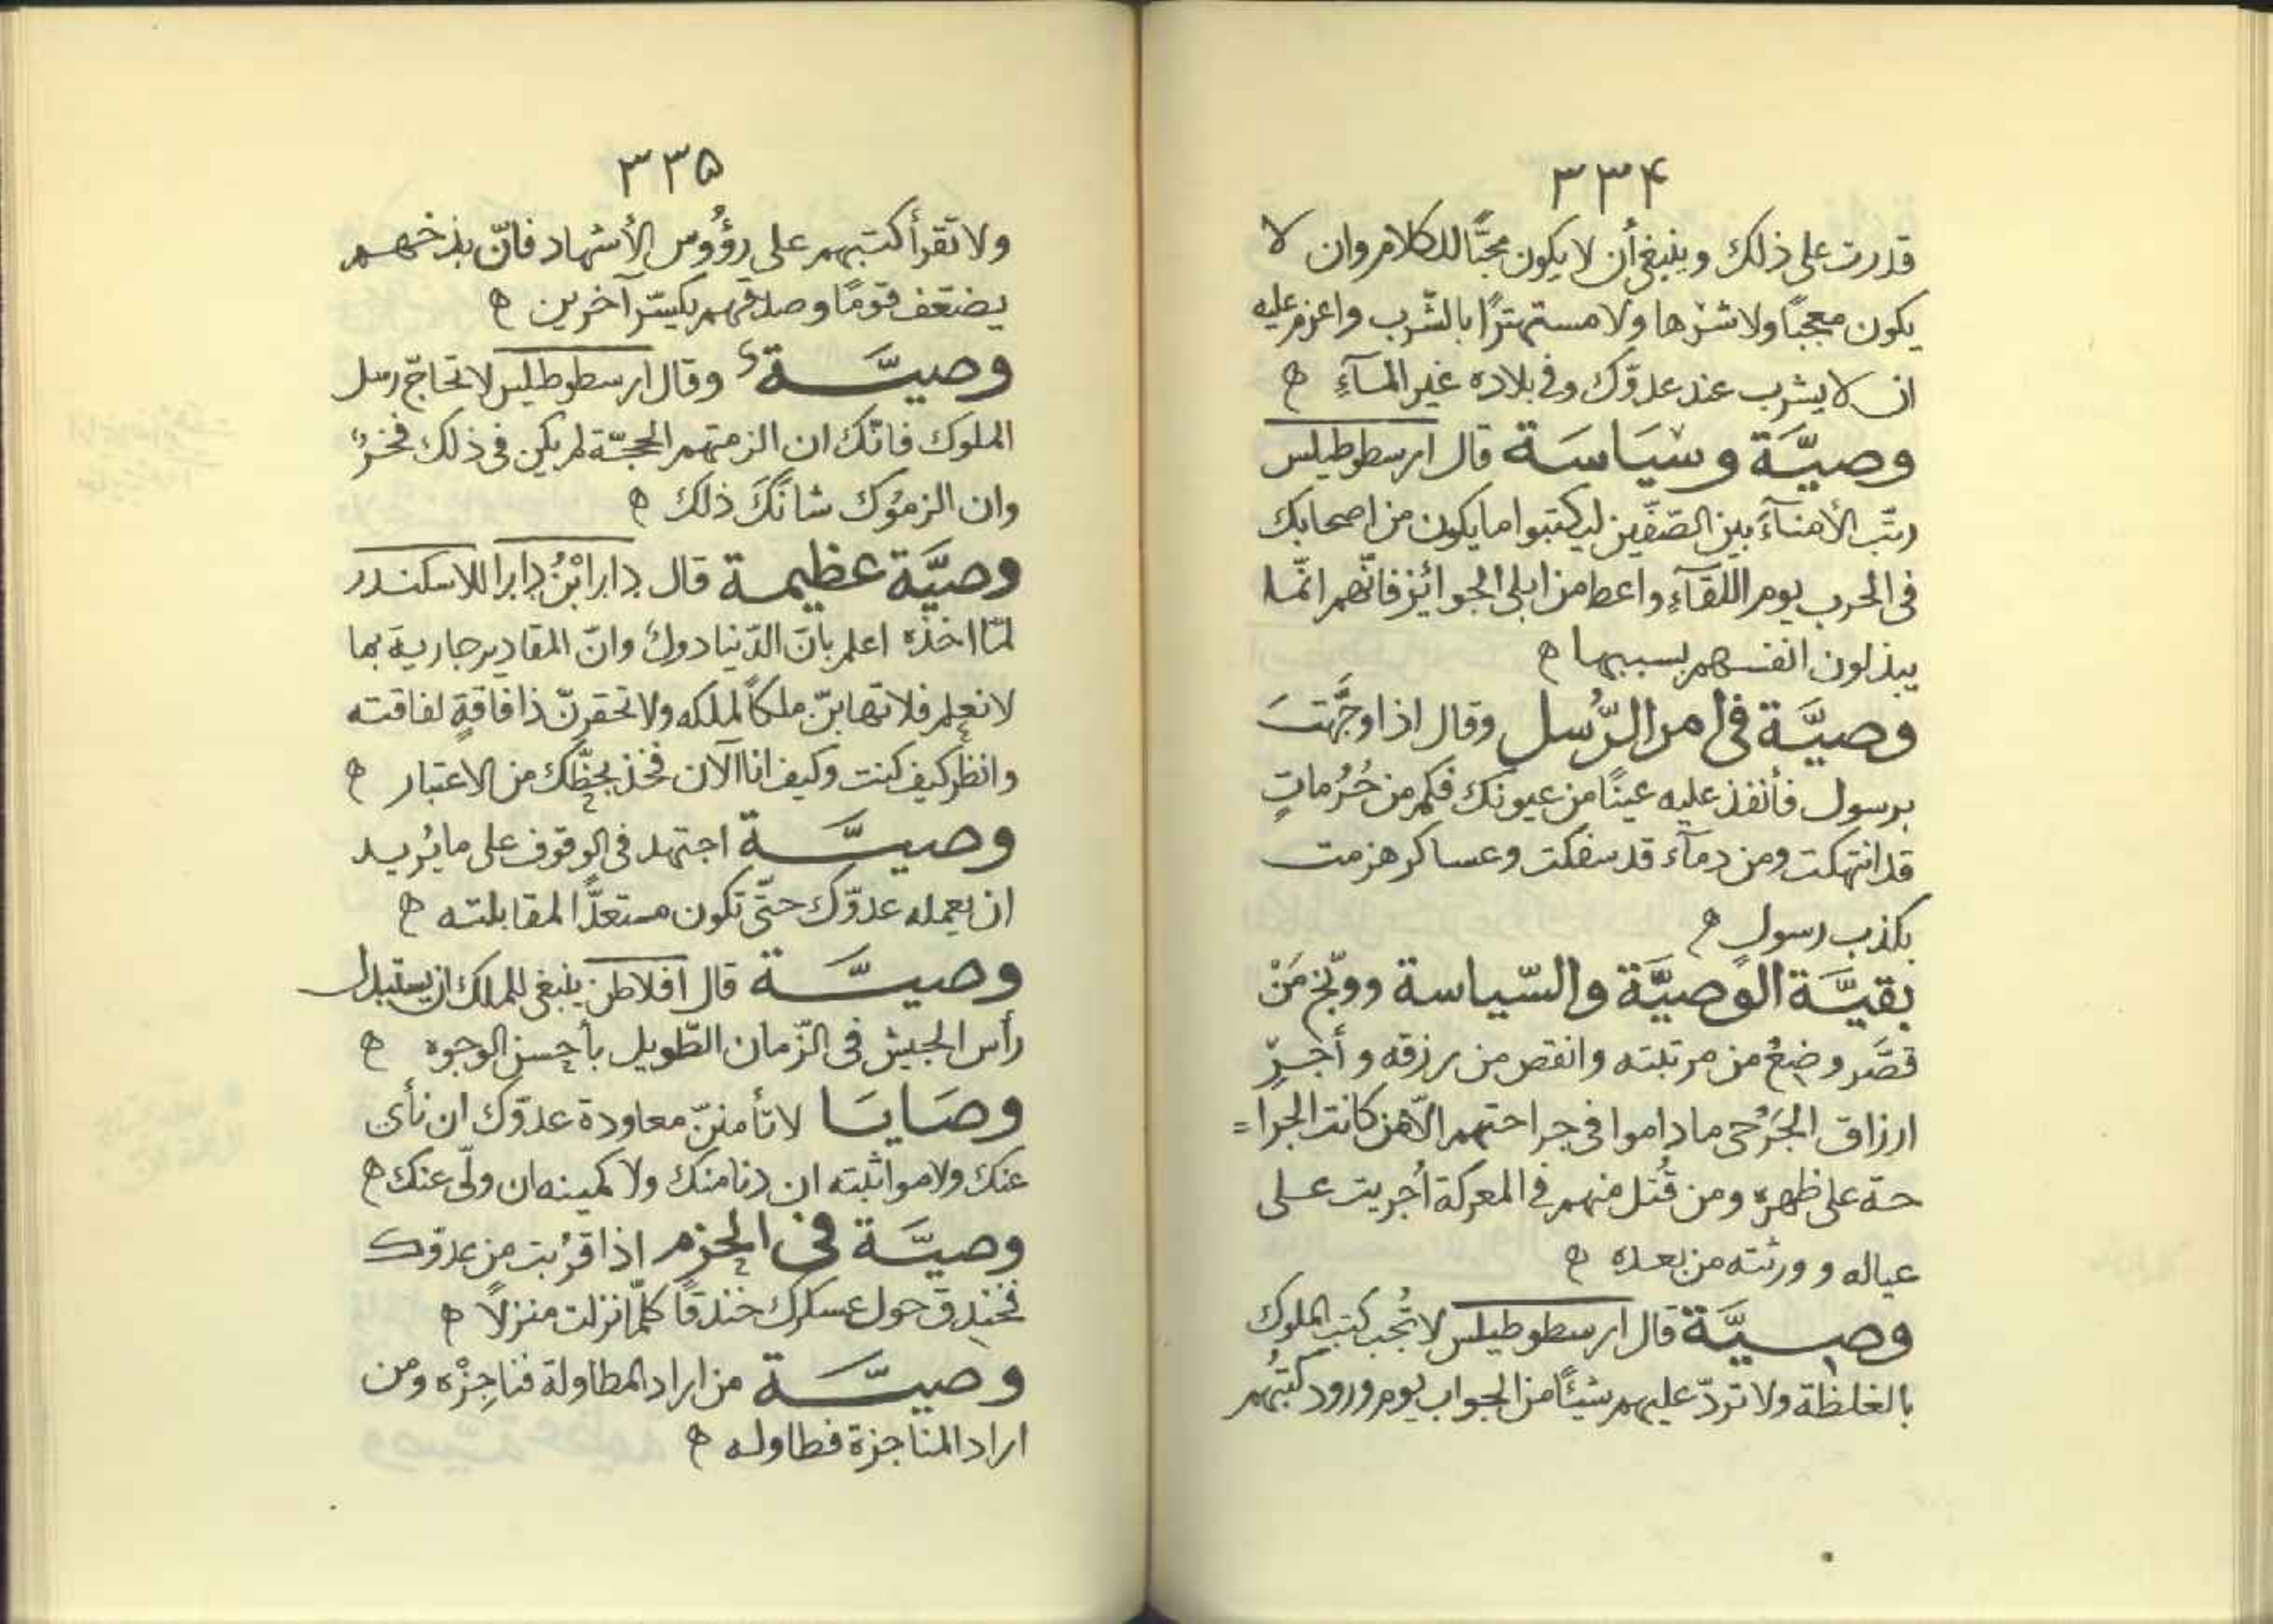 ٣٣۴
قدرت على ذلك وينبغي أن لا يكون محبًّا للكلام وان لا
يكون معجبًا ولا شرها ولا مستهترًا بالشّرب واعزم عليه
ان لا يشرب عند عدوّك وفي بلاده غير المآءِ ه
وصيَّة وسيَاسَة قال ارسطوطيلس
رتّب الأمنآءَ بين الصّفّين ليكتبوا ما يكون من اصحابك
فى الحرب يوم اللّقآءِ واعط من ابلى الجوائز فانّهم انّما
يبذلون انفسهم بسببها ه
وصيَّة فى امر الرُّسل وقال اذا وجَّهتَ
برسول فأنفذ عليه عينًا من عيونك فكم من حُرُماتٍ
قد انتهكت ومن دمآء قد سفكت وعساكر هزمت
بكذب رسولٍ ه
بقيَّة الوصيَّة والسّياسة ووبّخ مَنْ
قصَّر وضعْ من مرتبته وانقص من رزقه وأجرِ
ارزاق الجَرْحى ما داموا فى جراحتهم الّا من كانت الجرا=
حة على ظهره ومن قُتل منهم فى المعركة أجريت على
عياله وورثته من بعده ه
وصيَّة قال ارسطوطيلس لا تُجب كتب الملوك
بالغلظة ولا تردّ عليهم شيئًا من الجواب يوم ورود كتبُهم
٣٣۵
ولا تقرأ كتبهم على رؤُوس الأشهاد فانّ بذخهم
يضتعف قومًا وصدقهم يكسّر آخرين ه
وصيَّة وقال ارسطوطيلس لا تحاجّ رسل
الملوك فانّك ان الزمتهم الحجّة لم يكن فى ذلك فخرٌ
وان الزموُك شانَكَ ذلك ه
وصيَّة عظيمة قال دارا ابْنُ دارا للاسكندر
لمّا اخذه اعلم بانَ الدّنيا دولٌ وانّ المقادير جارية بما
لا نعلم فلا تهابنّ ملكًا لملكه ولا تحقرنّ ذا فاقةٍ لفاقته
وانظر كيف كنت وكيف انا الآن فخذ بحظّك من الاعتبار ه
وصيَّة اجتهد فى الوقوف على ما يُريد
ان يعمله عدوّك حتّى تكون مستعدًّا لمقابلته ه
وصيَّة قال افلاطن ينبغي للملك ان يستبدل
رأس الجيش فى الزّمان الطّويل بأحسن الوجوه ه
وصَايَا لا تأمننّ معاودة عدوّك ان نأى
عنك ولا مواثبته ان دنا منك ولا كمينه ان ولّى عنك ه
وصيَّة فى الحزم اذا قرُبت من عدوّك
فخندق حول عسكرك خندقًا كلّما نزلت منزلًا ه
وصيَّة من اراد المطاولة فناجِزْه ومن
اراد المناجزة فطاوله ه